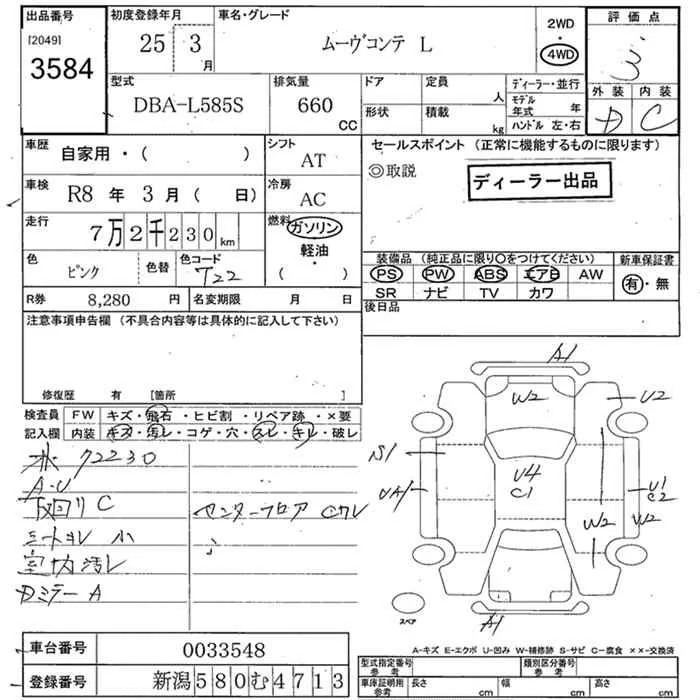 出品番号 初度登録年月 車名・グレード 2WD ・ 4WD 評価点
[2049] 3584 25 3月 ムーヴコンテ L 3
型式 排気量 ドア 定員 人 ディーラー・並行 外装 内装
DBA-L585S 660 CC 形状 積載 kg モデル年式 年 D C
ハンドル 左・右
車歴 自家用・( ) シフト AT セールスポイント (正常に機能するものに限ります)
◎取説 ディーラー出品
車検 R8 年 3 月 ( 日) 冷房 AC
走行 7万2千230km 燃料 ガソリン 軽油・( )
色 ピンク 色替 色コード T22
装備品 (純正品に限り○をつけてください) 新車保証書
PS PW ABS エアB AW 有・無
SR ナビ TV カワ
R券 8,280 円 名変期限 月 日 後日品
注意事項申告欄 (不具合内容等は具体的に記入して下さい)
修復歴 有 [箇所 ]
検査員 FW キズ・飛石・ヒビ割・リペア跡・×要
記入欄 内装 キズ・汚レ・コゲ・穴・スレ・キレ・破レ
72230
A・U
下回り C センターフロア
シートヨレ 小
室内汚レ
A
A1
W2
U2
S1
U4
C1
UA1
U1
C2
W2 W2
A1
スペア
A-キズ E-エクボ U-凹み W-補修跡 S-サビ C-腐食 ××-交換済
車台番号 0033548
登録番号 新潟580む4713
型式指定番号 参考 類別区分番号 参考
車庫証明用 参考 長さ cm 幅 cm 高さ cm